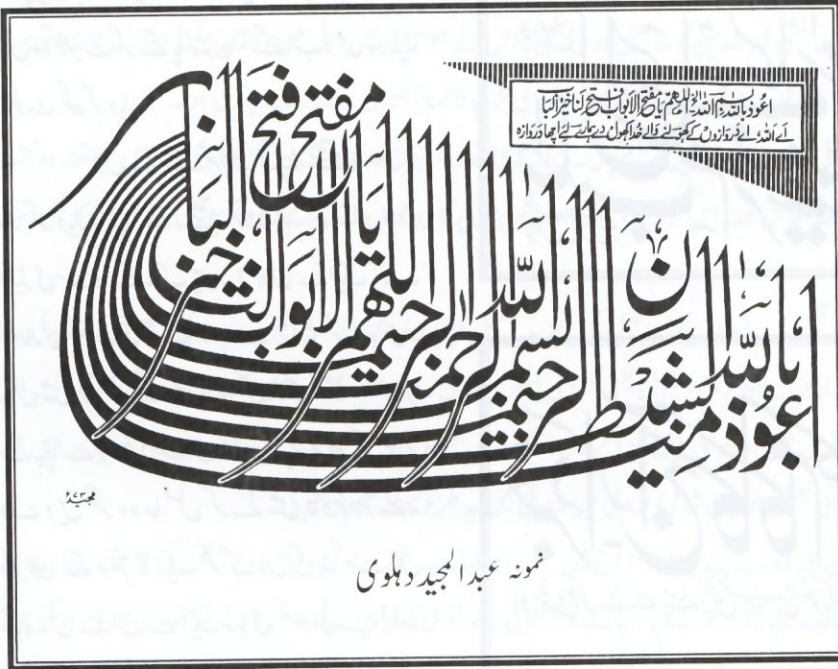 اعوذ باللہ بسم اللہ اللھم یا مفتح الابواب فتح لنا خیر الباب
اے اللہ اے دروازوں کے کھولنے والے خدا کھول دے ہمارے لئے اچھا دروازہ
اعوذ بالله من الشيطن الرجيم بسم الله الرحمن الرحيم اللهم يا مفتح الابواب فتح لنا خير الباب
نمونہ عبدالمجید دہلوی